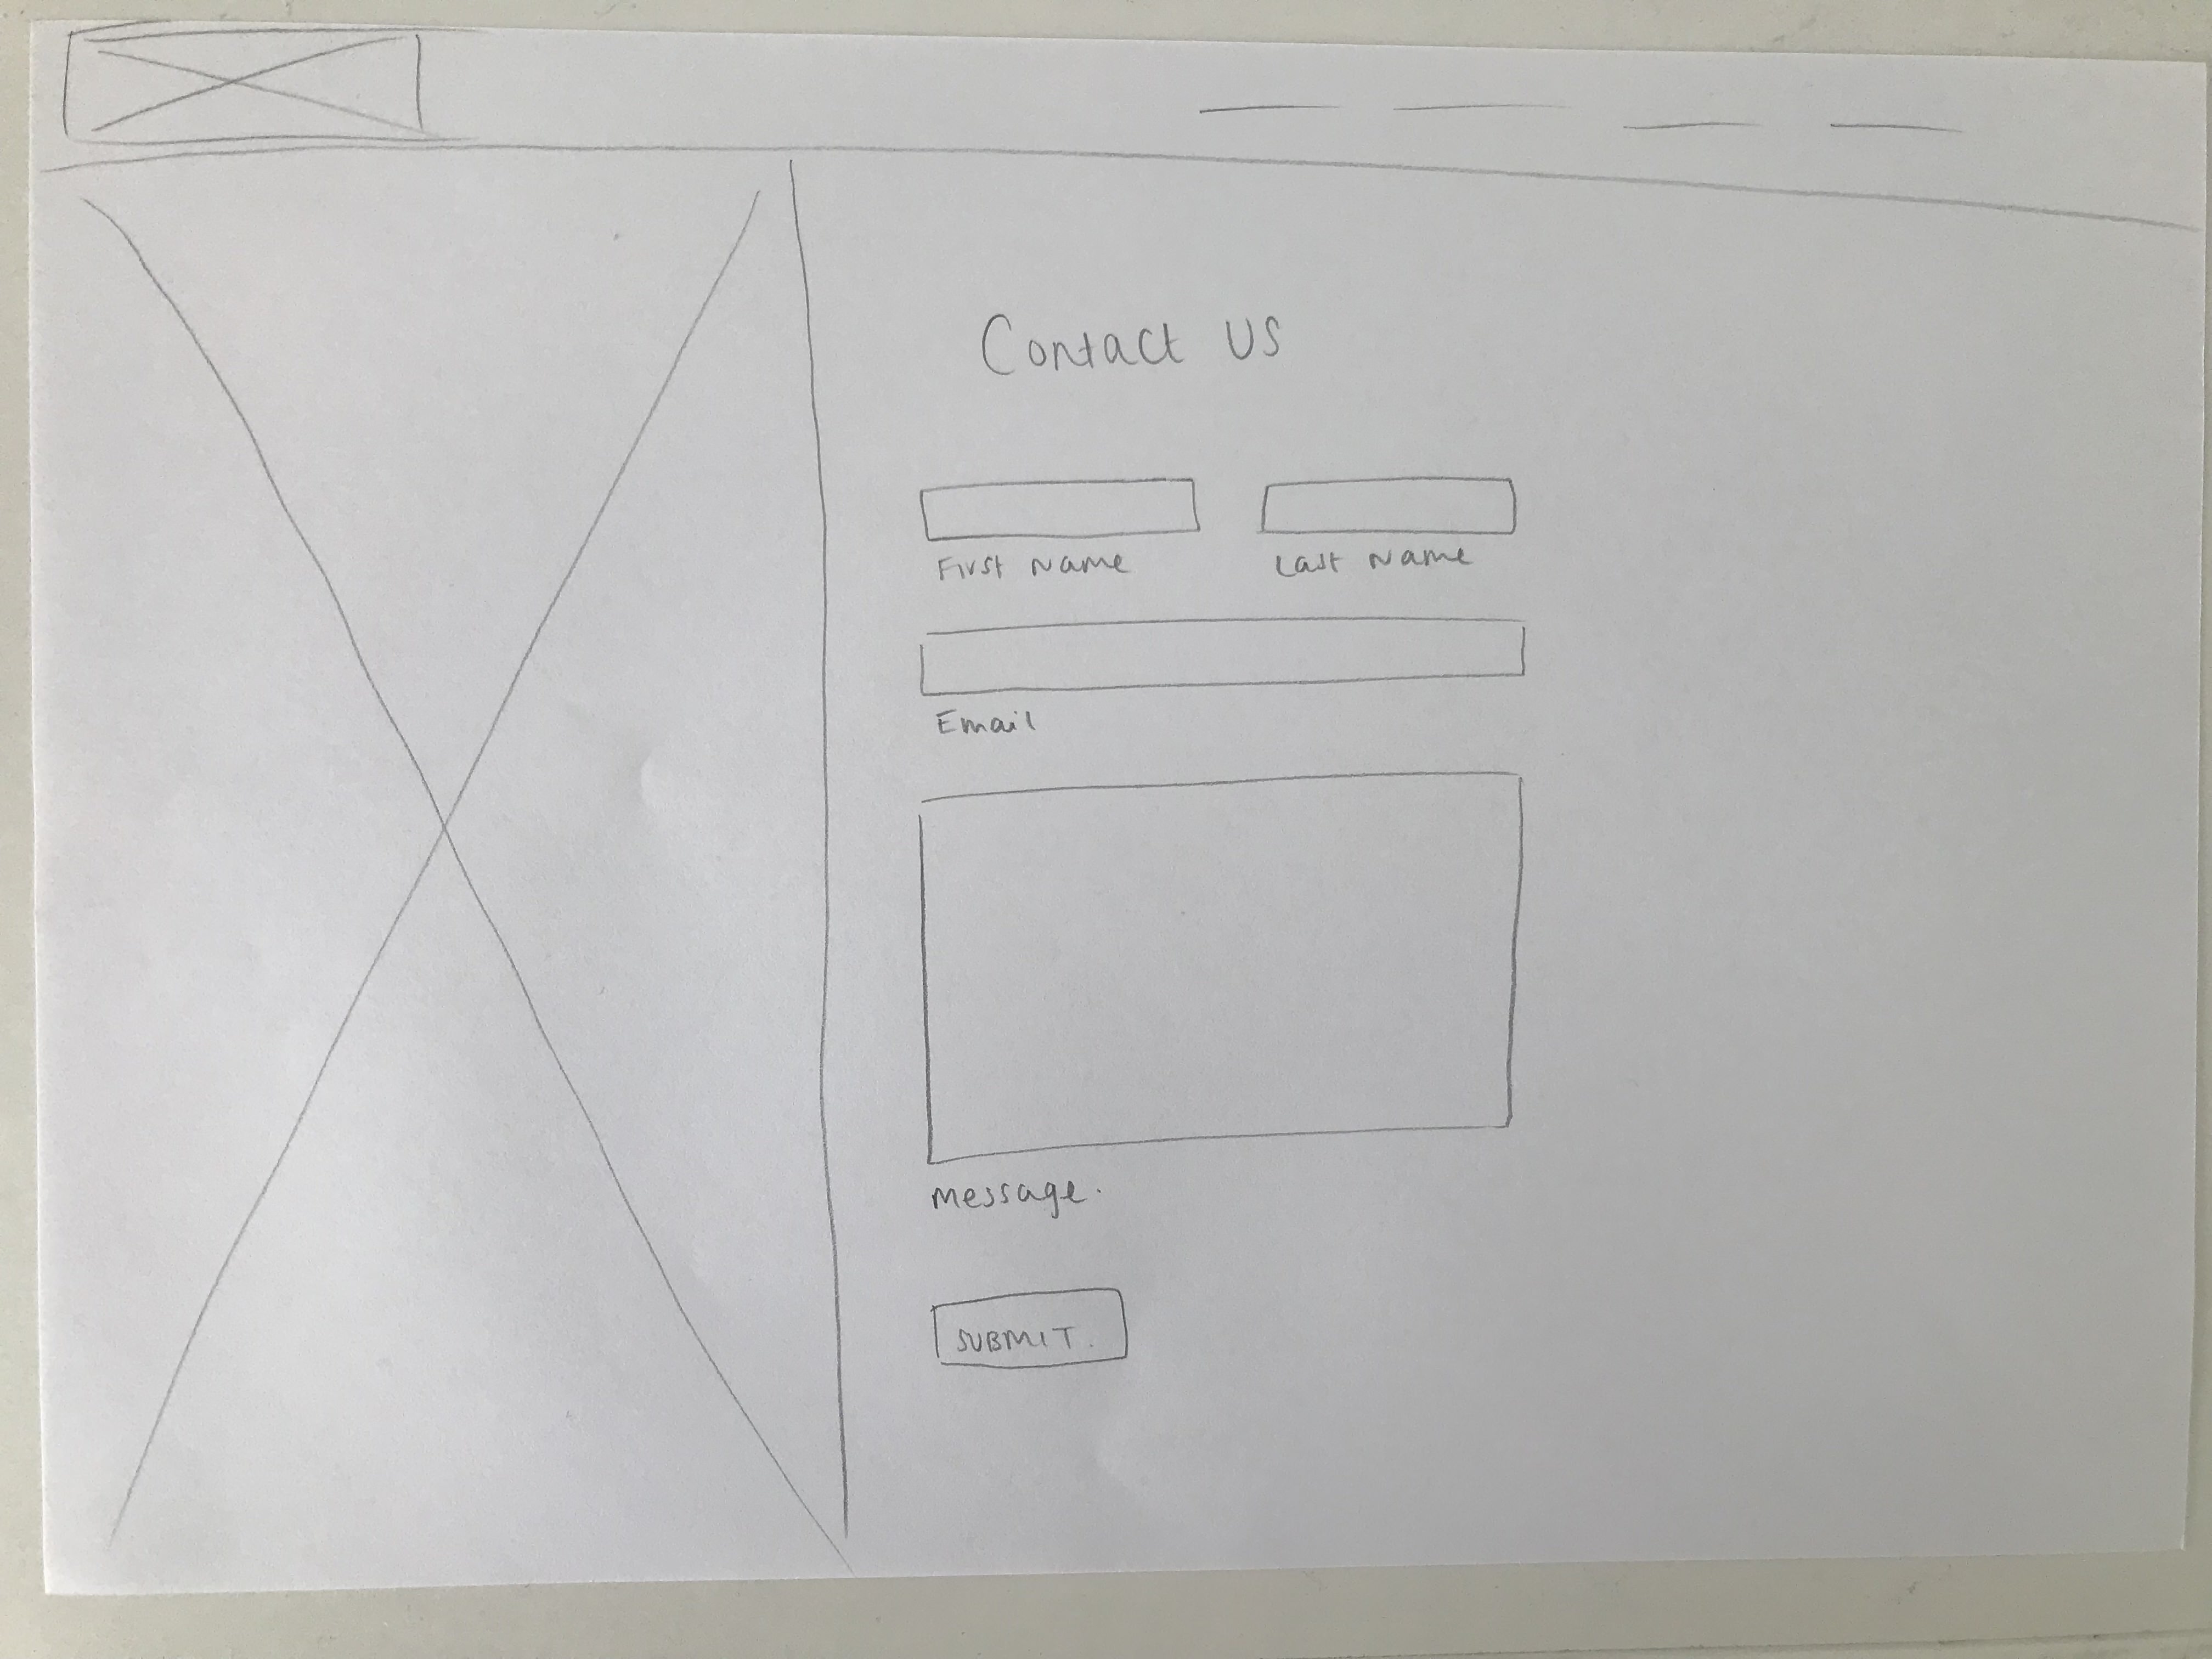 Contact US
First Name Last Name
Email
Message.
SUBMIT.